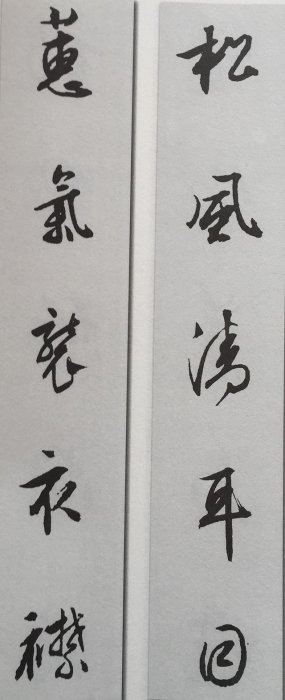 松風清耳目
蕙氣襲衣襟